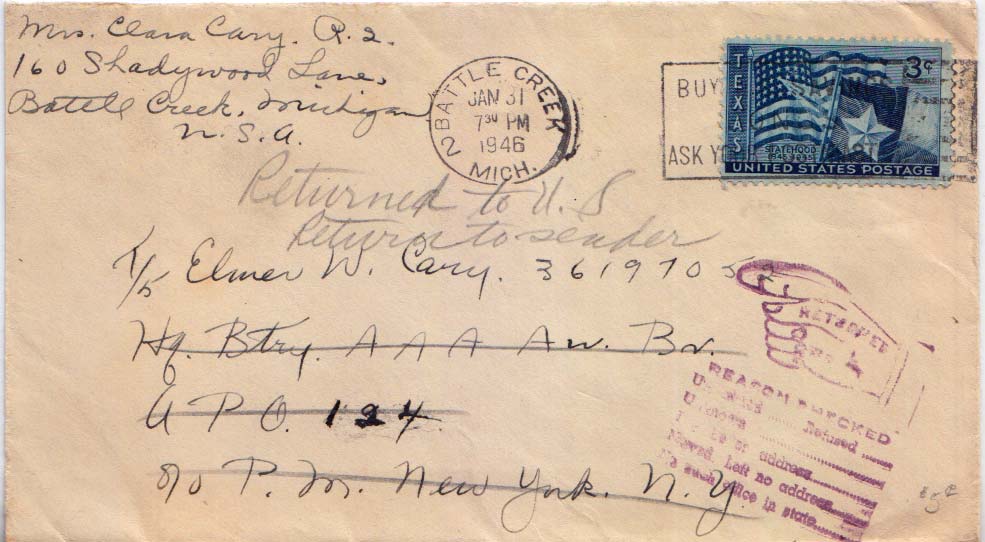 Mrs. Clara Cary. R. 2.
160 Shadywood Lane,
Battle Creek, Michigan
U. S. A.
2 BATTLE CREEK
JAN 31
7 30 PM
1946
MICH.
BUY
ASK Y
TEXAS
3¢
STATEHOOD
1845 1945
UNITED STATES POSTAGE
Returned to U. S
Return to sender
T/5 Elmer W. Cary. 36197052
Hq. Btry. A A A Aw. Bn.
A P O. 124
c/o P. M. New York. N. Y.
REASON CHECKED
Unknown
Refused
address
Moved, left no address
No such office in state
5¢